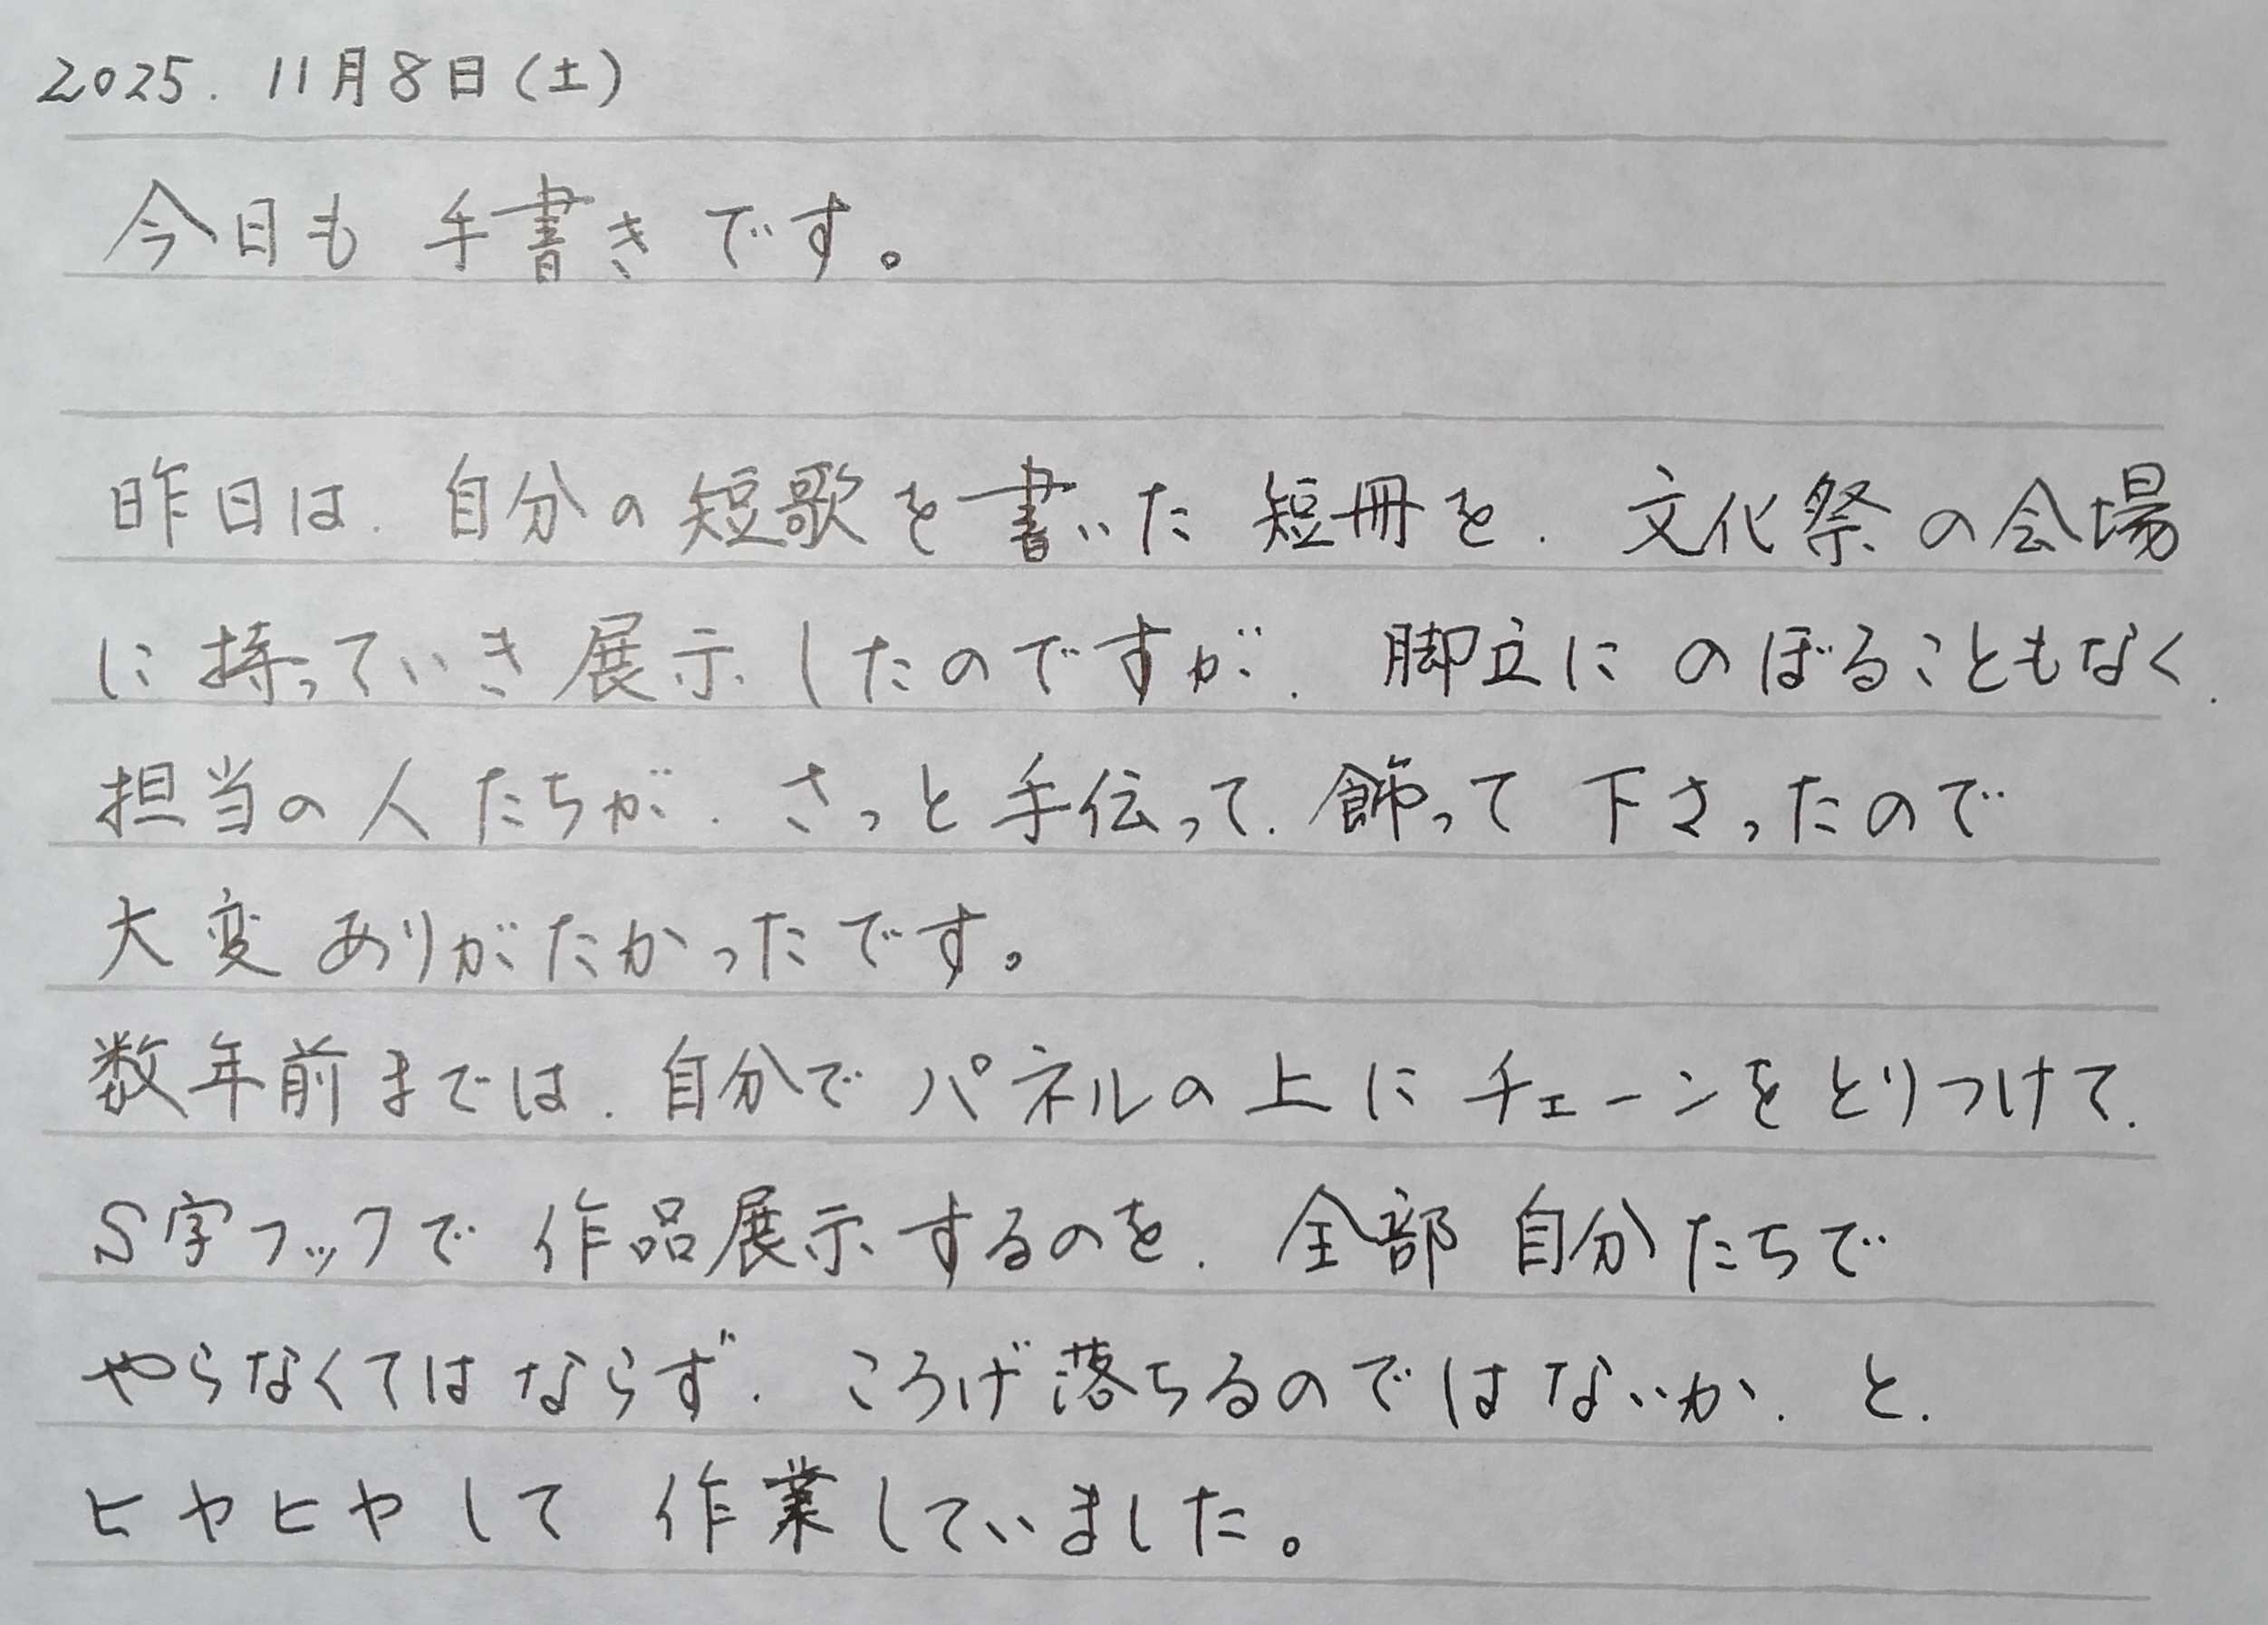 2025. 11月8日(土)
今日も 手書きです。
昨日は、自分の短歌を書いた 短冊を、文化祭の会場
に持っていき展示したのですが、脚立に のぼることもなく、
担当の人たちが、さっと手伝って、飾って 下さったので
大変ありがたかったです。
数年前までは、自分で パネルの上に チェーンをとりつけて、
S字フックで 作品展示するのを、全部 自分たちで
やらなくてはならず、ころげ落ちるのではないか、と、
ヒヤヒヤして 作業していました。